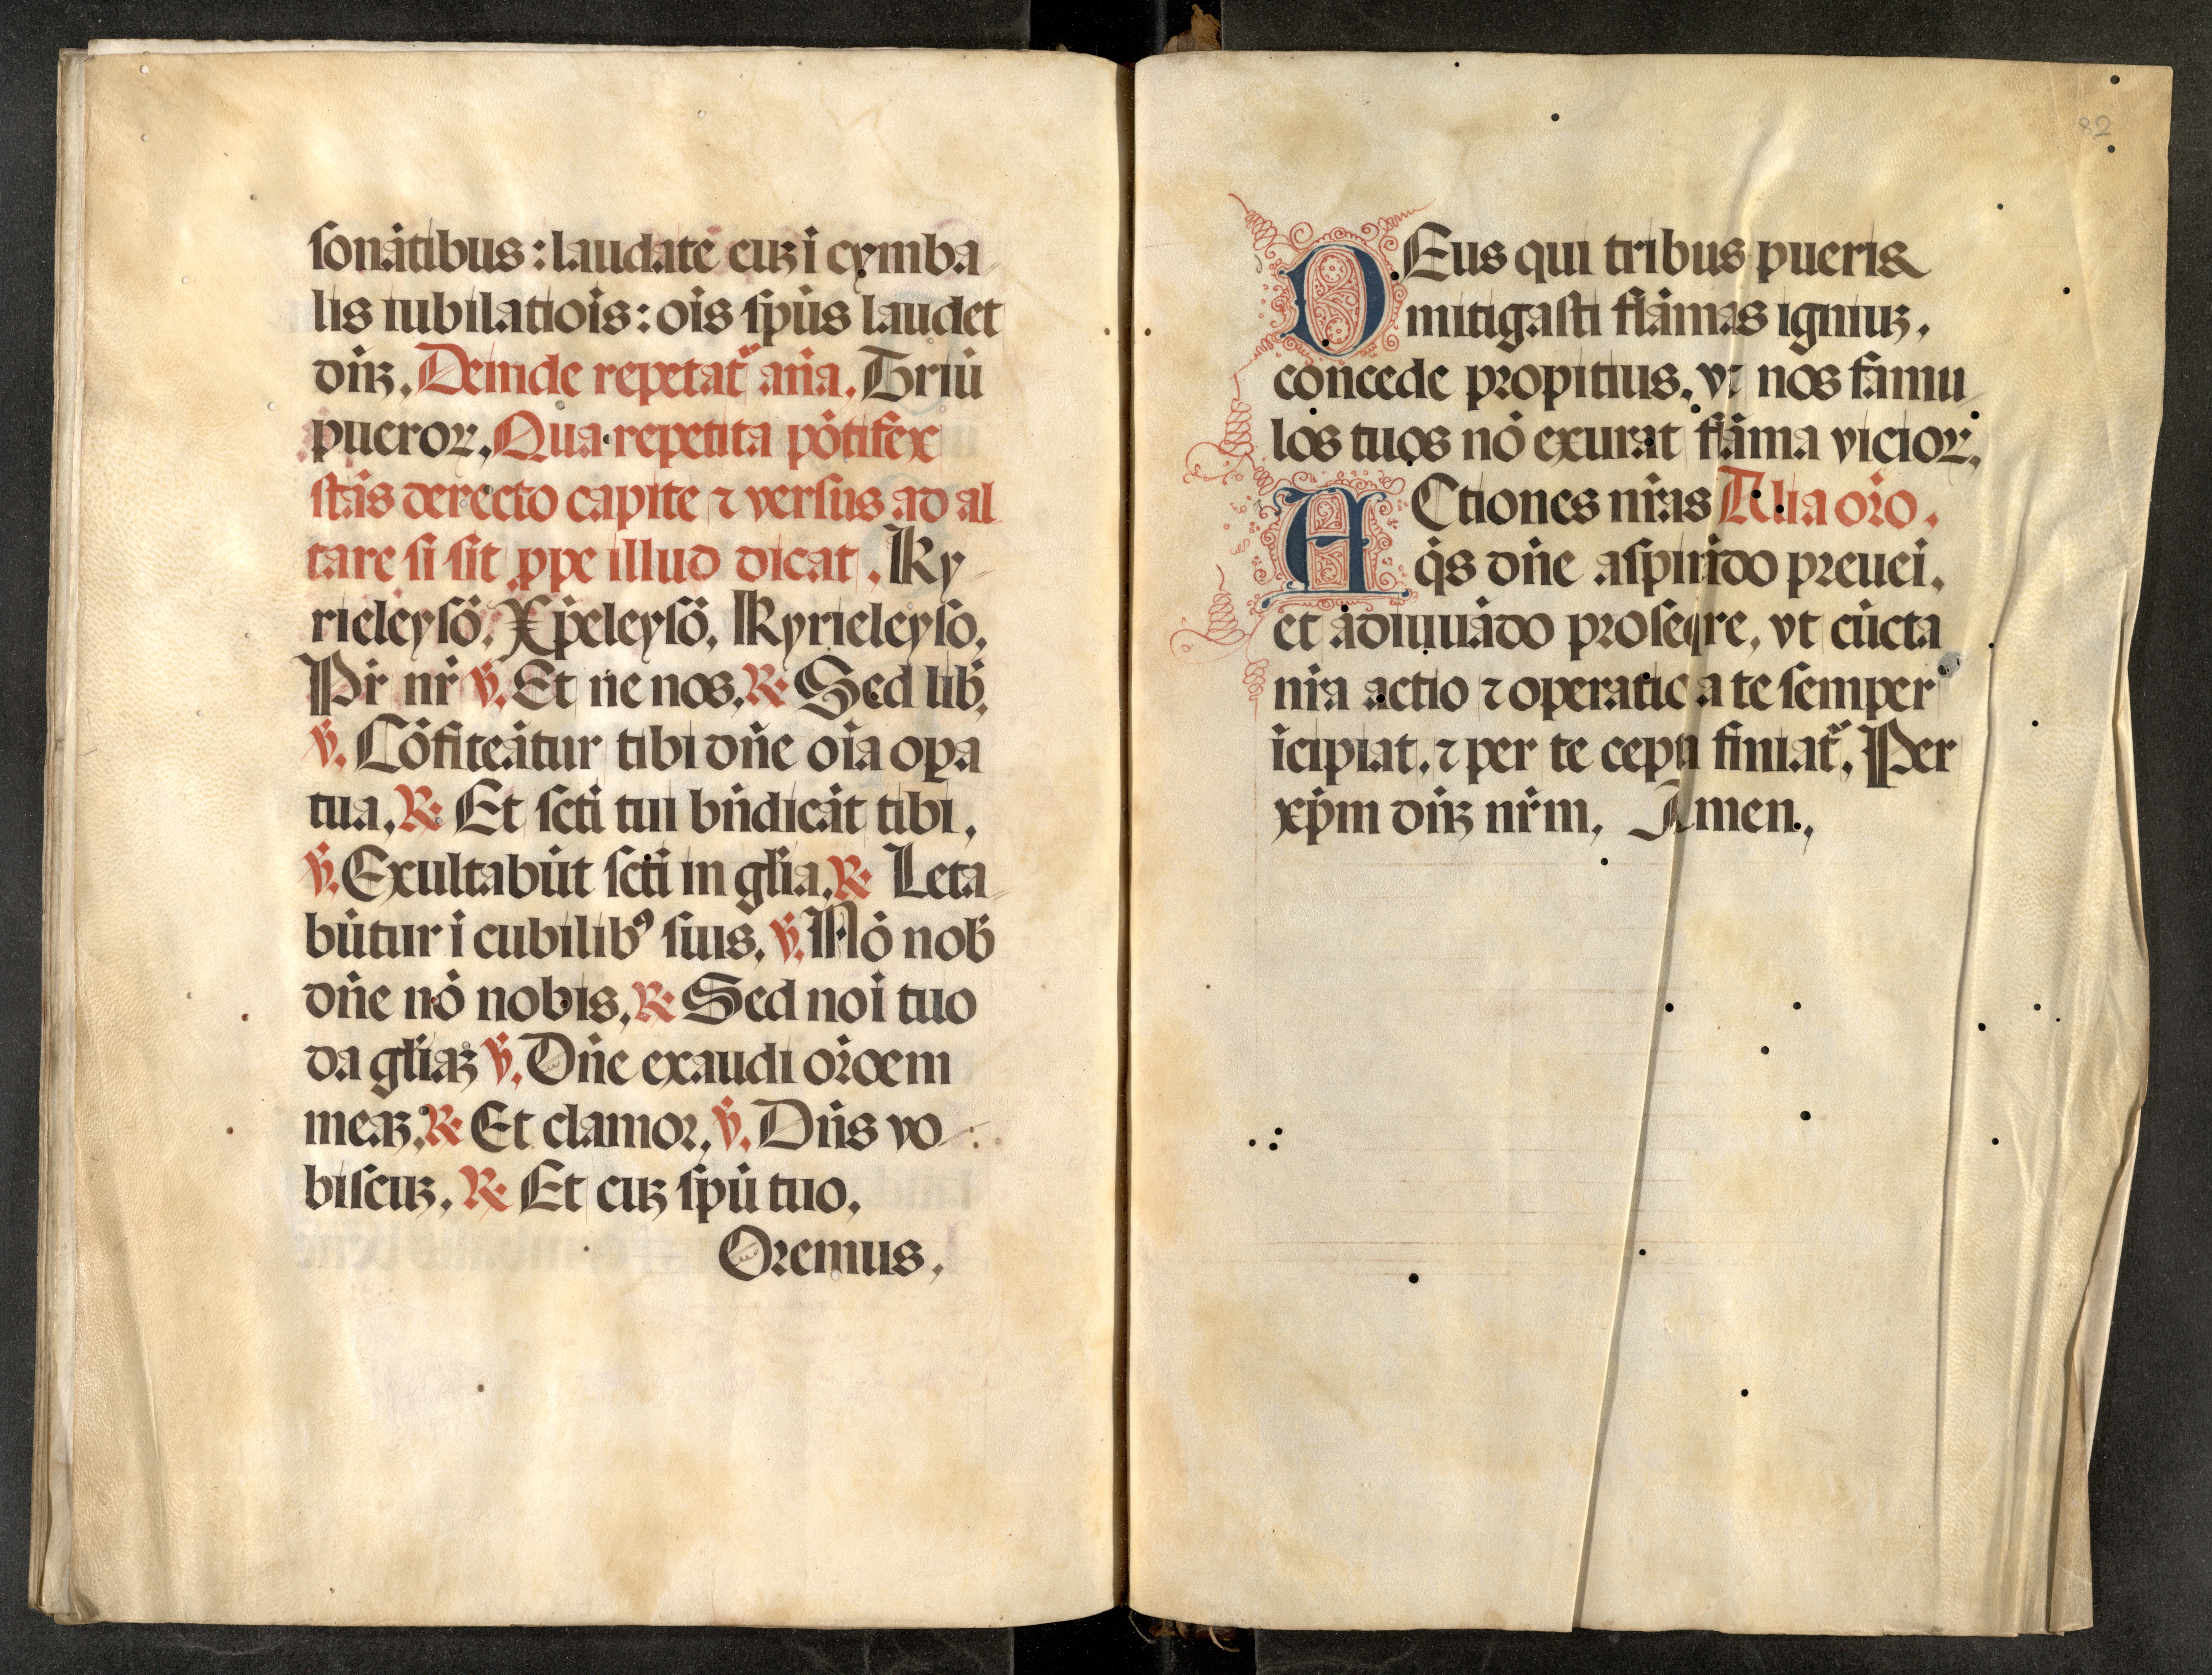 ſonātibus : laudate euꝫ i cymba
lis iubilatiōis : ois ſpūs laudet
dn̄ꝫ. Deinde repetat᷑ an̄a. Triū
pueroꝝ. Qua repetita pōtifex
ſtās detecto capite ⁊ verſus ad al
tare ſi ſit ꝓpe illud dicat. Ky
rieleyſō. Xp̄eleyſō. Kyrieleyſō.
Pr̄ nr̄ ℣. Et ne nos. ℟ Sed lib̄.
℣. Cōfiteātur tibi dn̄e oīa oꝑa
tua. ℟ Et ſct̄i tui bn̄dicāt tibi.
℣. Exultabūt ſct̄i in gl̄ia. ℟ Leta
būtur i cubilibꝰ ſuis. ℣. Nō nob̄
dn̄e nō nobis. ℟ Sed noī tuo
da gl̄iaꝫ ℣. Dn̄e exaudi or̄oem
meaꝫ. ℟ Et clamor. ℣. Dn̄s vo
biſcuꝫ. ℟ Et cuꝫ ſpū tuo.
Oremus.
82
DEus qui tribus pueris
mitigaſti flāmas igniuꝫ.
concede propitius. vt nos famu
los tuos nō exurat flāma vicioꝝ.
ACtiones nr̄as Alia or̄o.
q̄s dn̄e aſpirādo preuēi.
et adiuuādo proſeqre. vt cūcta
nr̄a actio ⁊ operatio a te ſemper
īcipiat. ⁊ per te cepta finiat᷑. Per
xp̄m dn̄ꝫ nr̄m. Amen.